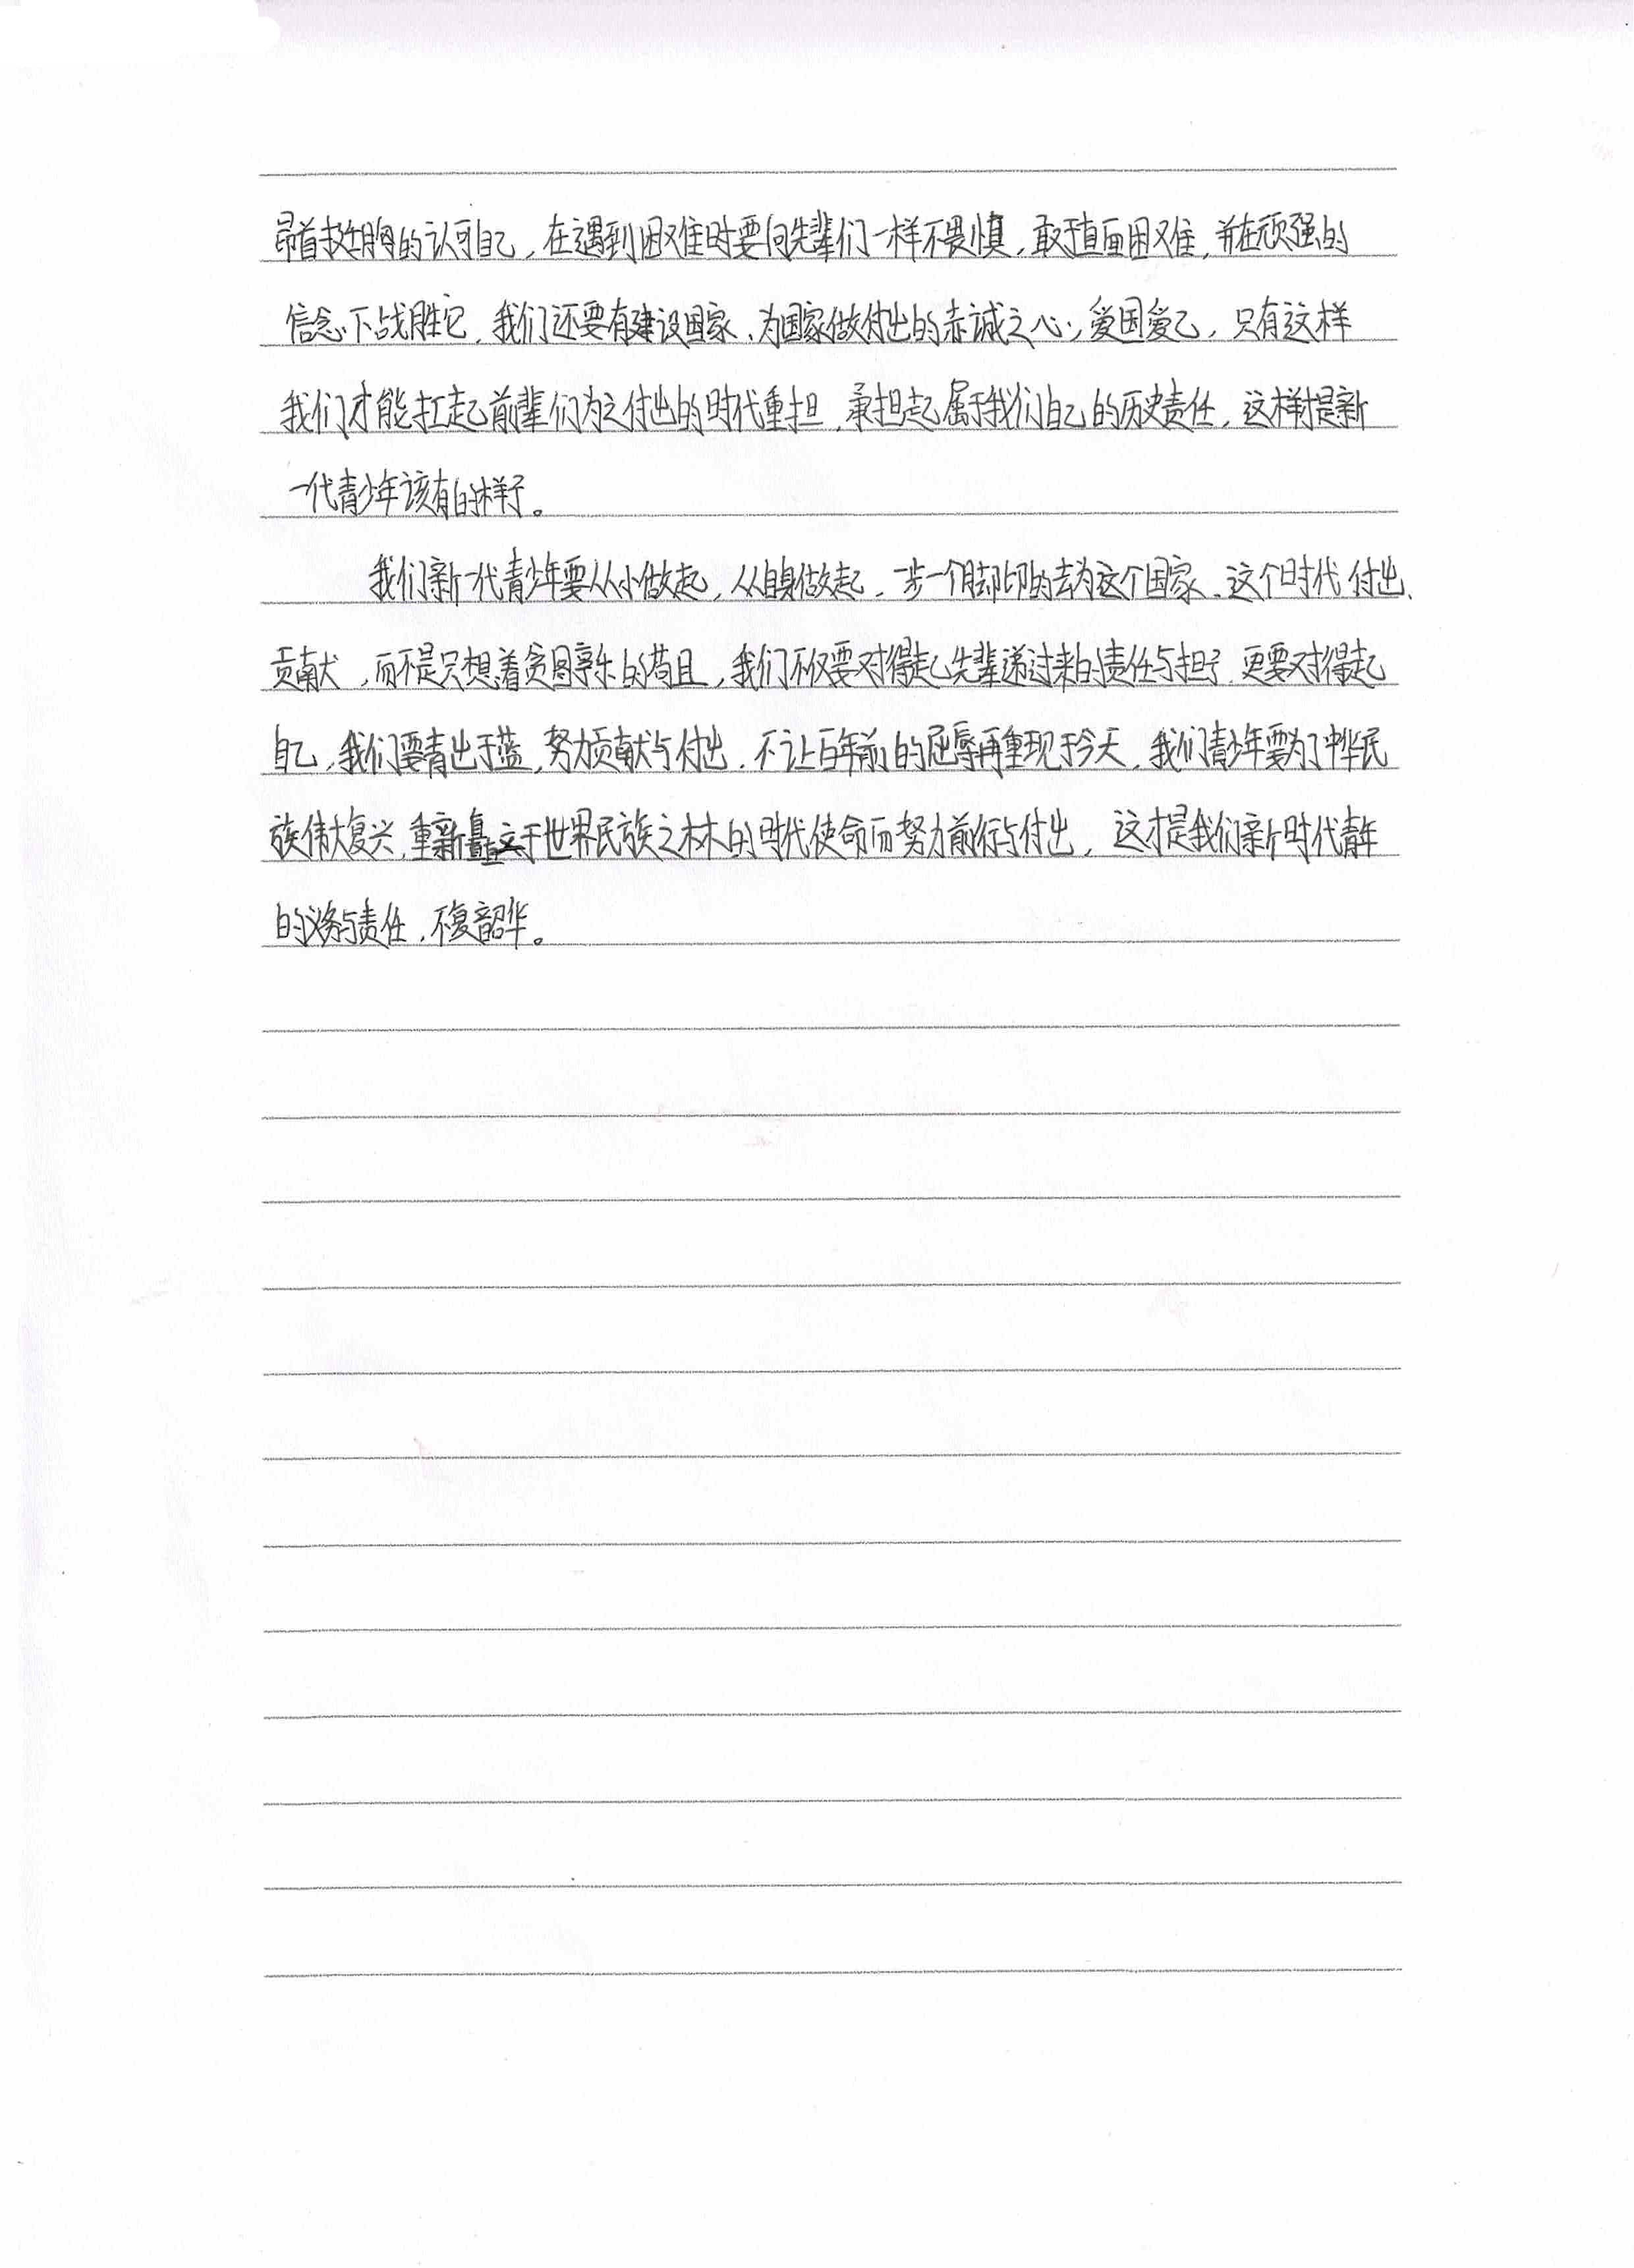 昂首挺胸的认可自己，在遇到困难时要向先辈们一样不畏惧，敢于直面困难，并在顽强的
信念下战胜它，我们还要有建设国家、为国家做付出的赤诚之心，爱国爱己，只有这样
我们才能扛起前辈们为之付出的时代重担，承担起属于我们自己的历史责任，这样才是新
一代青少年该有的样子。
我们新一代青少年要从小做起，从自身做起，一步一个脚印的去为这个国家、这个时代付出、
贡献，而不是只想着贪图享乐的苟且，我们不仅要对得起先辈递过来的责任与担子，更要对得起
自己，我们要青出于蓝，努力贡献与付出，不让百年前的屈辱再重现于今天，我们青少年要为了中华民
族伟大复兴，重新矗立于世界民族之林的时代使命而努力前行与付出，这才是我们新时代青年
的义务与责任，不复韶华。